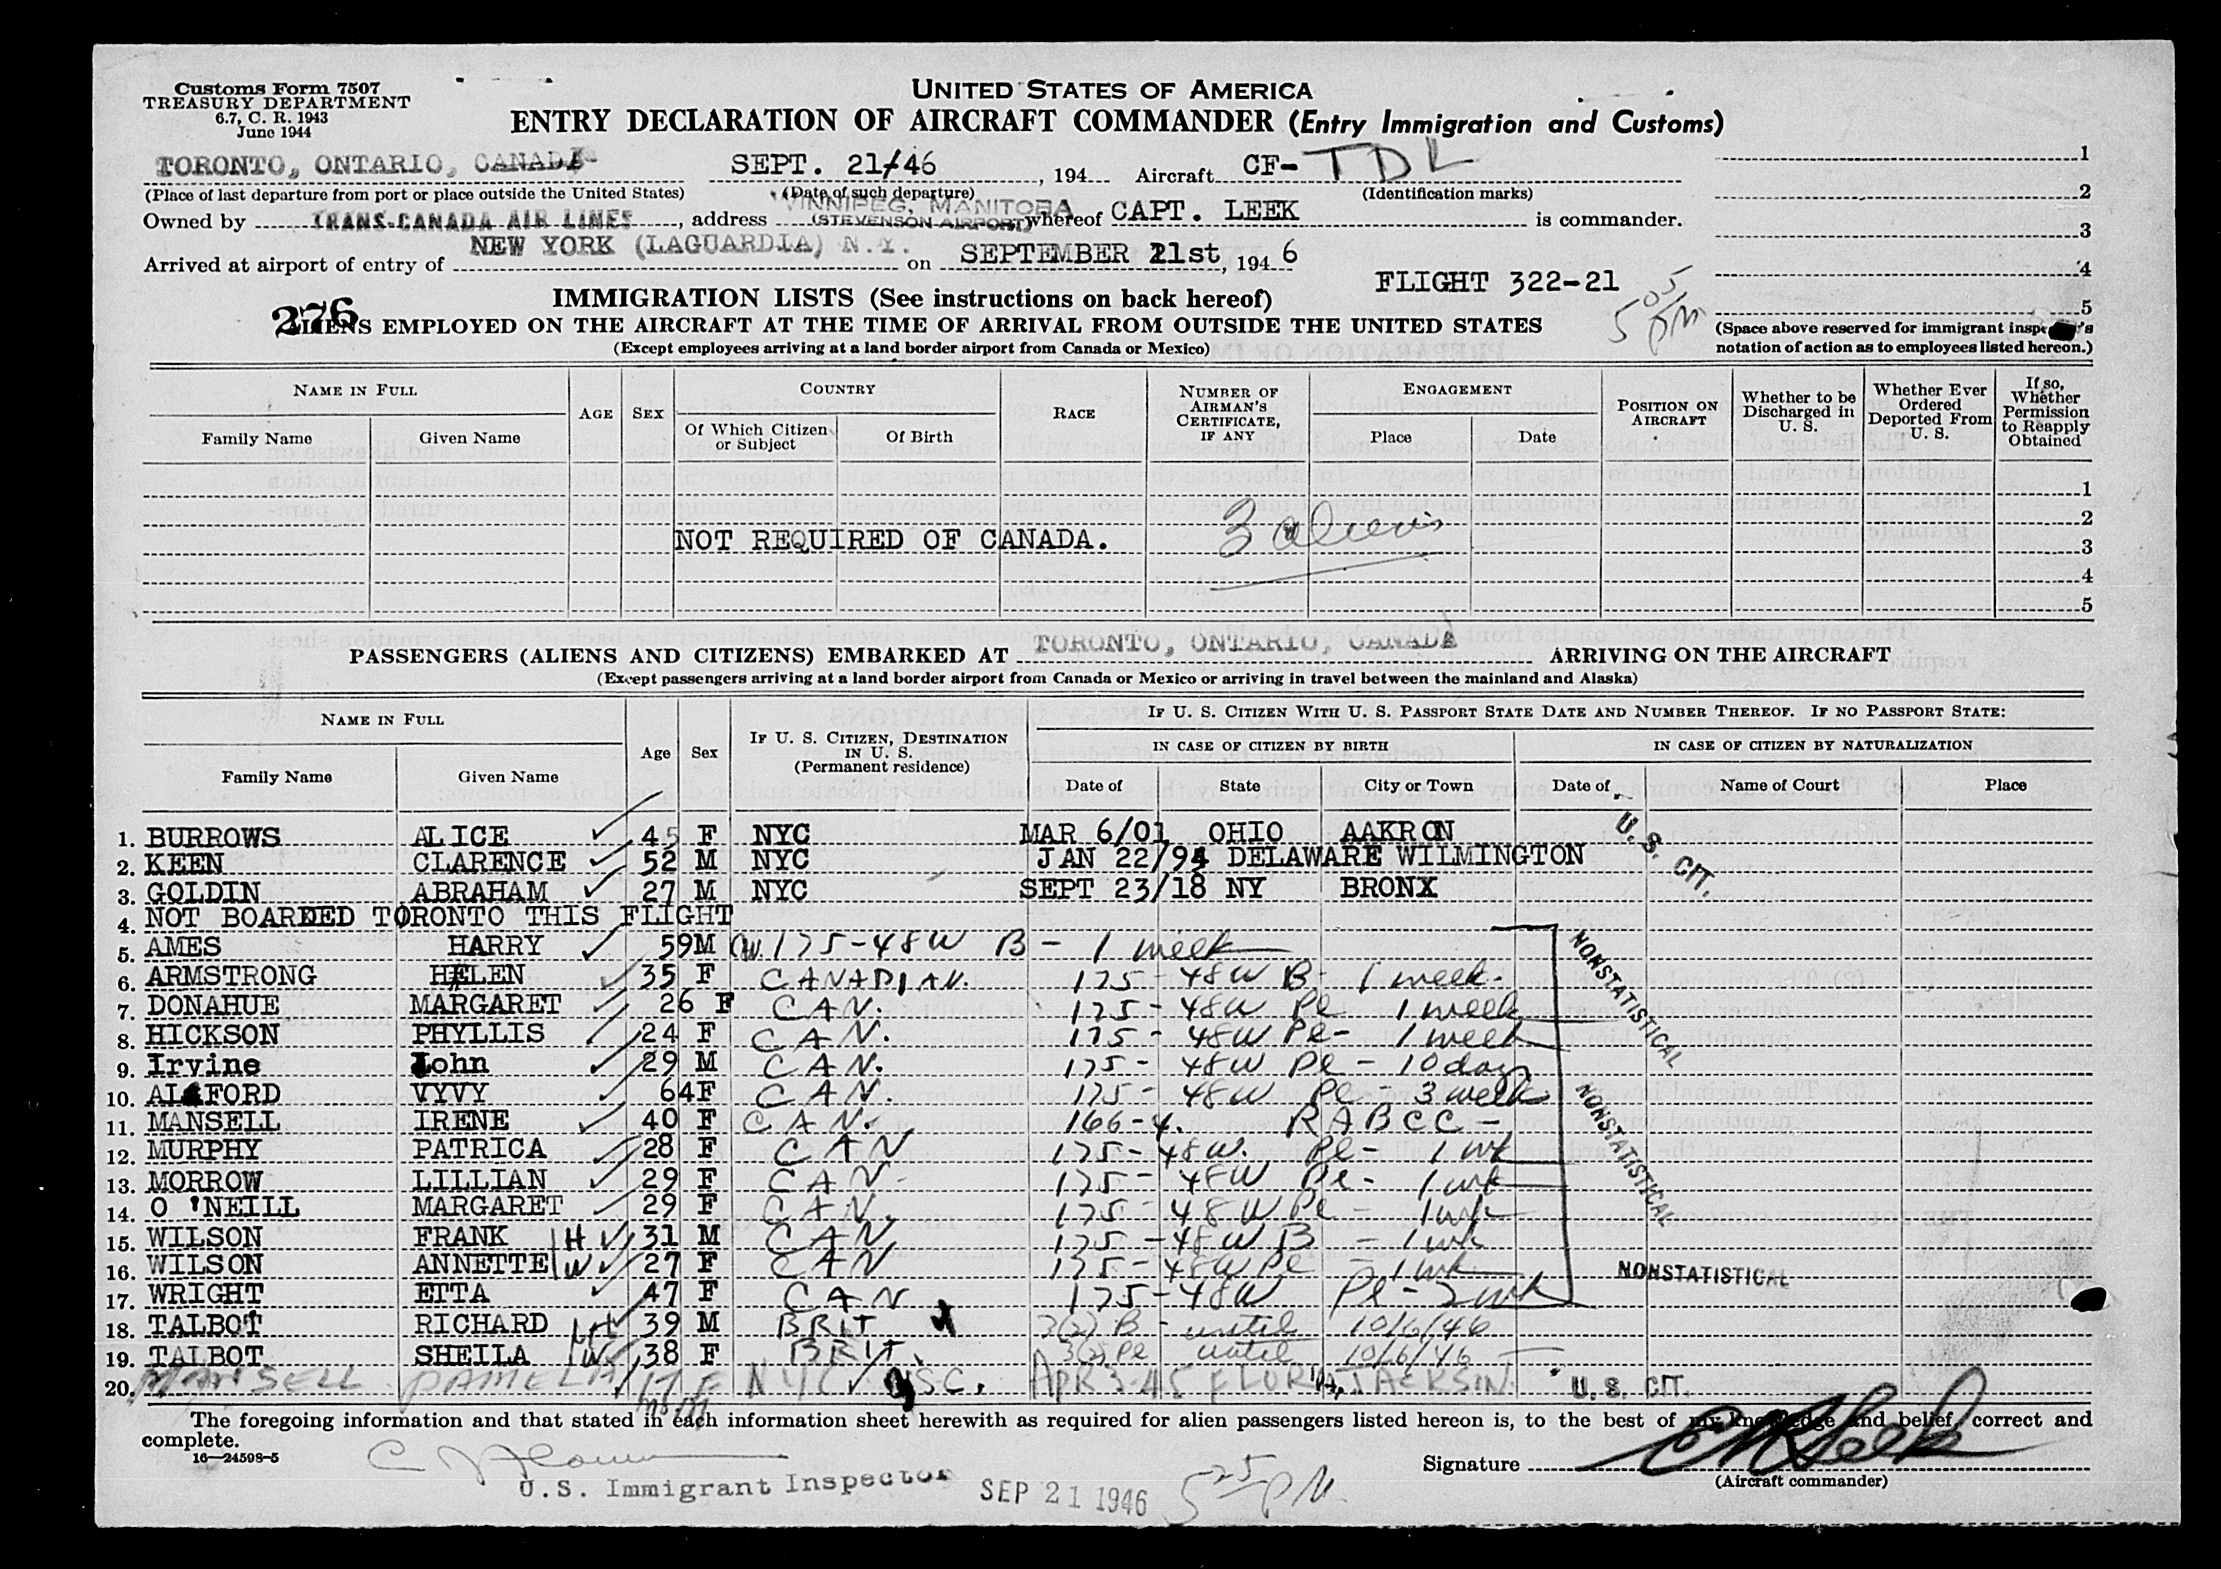 Customs Form 7507
TREASURY DEPARTMENT
6.7, C. R. 1943
June 1944
UNITED STATES OF AMERICA
ENTRY DECLARATION OF AIRCRAFT COMMANDER (Entry Immigration and Customs)
TORONTO, ONTARIO, CANADA SEPT. 21/46, 194 Aircraft CF-TDL
(Place of last departure from port or place outside the United States) (Date of such departure) (Identification marks)
WINNIPEG, MANITOBA
Owned by TRANS-CANADA AIR LINES, address (STEVENSON AIRPORT) whereof CAPT. LEEK is commander.
Arrived at airport of entry of NEW YORK (LAGUARDIA) N.Y. on SEPTEMBER 21st, 1946
1
2
3
4
5
FLIGHT 322-21
5 05 PM
276
IMMIGRATION LISTS (See instructions on back hereof)
ALIENS EMPLOYED ON THE AIRCRAFT AT THE TIME OF ARRIVAL FROM OUTSIDE THE UNITED STATES
(Except employees arriving at a land border airport from Canada or Mexico)
(Space above reserved for immigrant inspector's
notation of action as to employees listed hereon.)
NAME IN FULL AGE SEX COUNTRY RACE NUMBER OF AIRMAN'S CERTIFICATE, IF ANY ENGAGEMENT POSITION ON AIRCRAFT Whether to be Discharged in U. S. Whether Ever Ordered Deported From U. S. If so, Whether Permission to Reapply Obtained
Family Name Given Name Of Which Citizen or Subject Of Birth Place Date
1
2
NOT REQUIRED OF CANADA. 3 aliens 3
4
5
PASSENGERS (ALIENS AND CITIZENS) EMBARKED AT TORONTO, ONTARIO, CANADA ARRIVING ON THE AIRCRAFT
(Except passengers arriving at a land border airport from Canada or Mexico or arriving in travel between the mainland and Alaska)
NAME IN FULL Age Sex IF U. S. CITIZEN, DESTINATION IN U. S. (Permanent residence) IF U. S. CITIZEN WITH U. S. PASSPORT STATE DATE AND NUMBER THEREOF. IF NO PASSPORT STATE:
IN CASE OF CITIZEN BY BIRTH IN CASE OF CITIZEN BY NATURALIZATION
Family Name Given Name Date of State City or Town Date of Name of Court Place
1. BURROWS ALICE 45 F NYC MAR 6/01 OHIO AAKRON
2. KEEN CLARENCE 52 M NYC JAN 22/94 DELAWARE WILMINGTON
3. GOLDIN ABRAHAM 27 M NYC SEPT 23/18 NY BRONX
U. S. CIT.
4. NOT BOARDED TORONTO THIS FLIGHT
5. AMES HARRY 59 M 175-48W B - 1 week
6. ARMSTRONG HELEN 35 F CANADIAN. 175-48W B - 1 week.
7. DONAHUE MARGARET 26 F CAN. 175-48W Pl 1 week
8. HICKSON PHYLLIS 24 F CAN. 175-48W Pl - 1 week
9. Irvine John 29 M CAN. 175-48W Pl - 10 days
NONSTATISTICAL
10. ALFORD VYVY 64 F CAN. 175-48W Pl - 3 week
11. MANSELL IRENE 40 F CAN. 166-4. RABCC -
12. MURPHY PATRICA 28 F CAN 175-48W. Pl - 1 wk
13. MORROW LILLIAN 29 F CAN. 175-48W Pl - 1 wk
14. O'NEILL MARGARET 29 F CAN. 175-48W Pl - 1 wk
NONSTATISTICAL
15. WILSON FRANK H 31 M CAN 175-48W B - 1 wk
16. WILSON ANNETTE W 27 F CAN 175-48W Pl - 1 wk NONSTATISTICAL
17. WRIGHT ETTA 47 F CAN 175-48W Pl - 2 wk
18. TALBOT RICHARD H 39 M BRIT 3(2) B - until 10/6/46
19. TALBOT SHEILA W 38 F BRIT. 3(2) Pl until 10/6/46
20. MANSELL PAMELA 17 F NYC USC. APR 3-45 FLORIDA, JACKSIN U. S. CIT.
The foregoing information and that stated in each information sheet herewith as required for alien passengers listed hereon is, to the best of my knowledge and belief, correct and
complete.
16—24598-5
Signature
(Aircraft commander)
U.S. Immigrant Inspector SEP 21 1946 5 25 PM